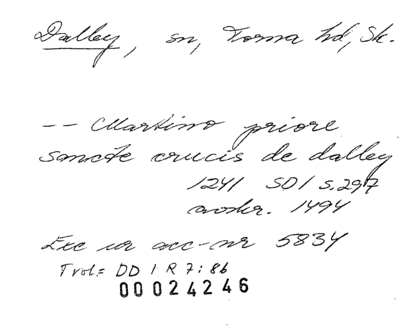 Dalley, sn, Torna hd, Sk.
-- Martino priore
sancte crucis de dalley
1241 SD I s. 297
avskr. 1494
Exc ur acc-nr 5834
Trol= DD I R 7:86
00024246